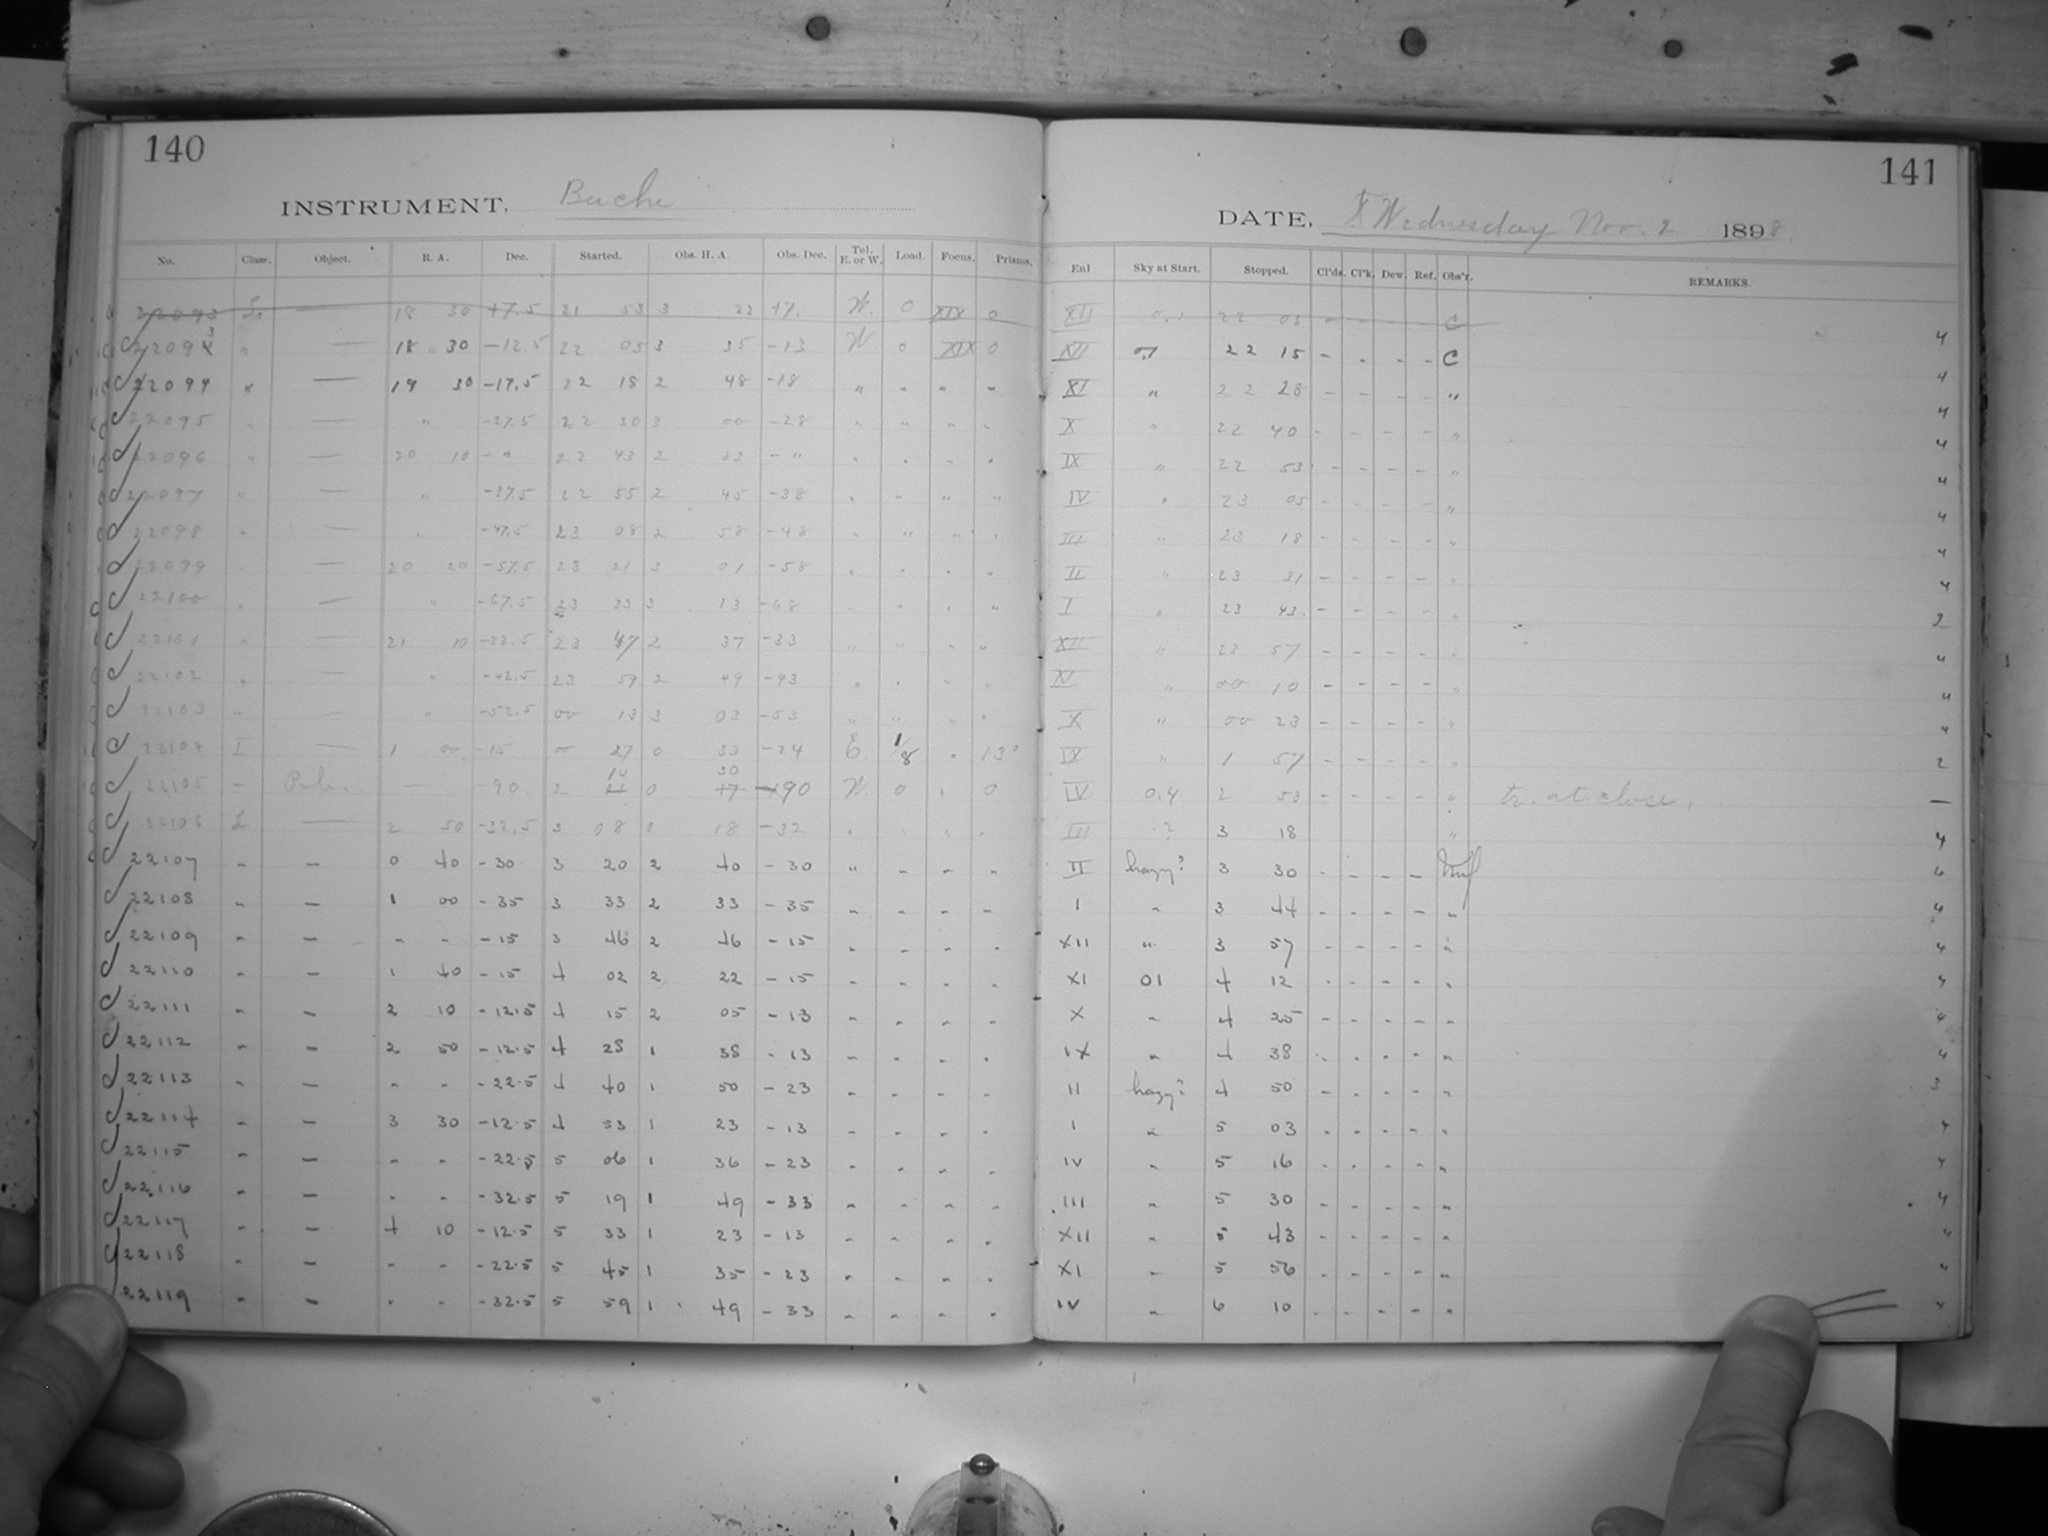 140
INSTRUMENT, Bache
No. Class. Object. R. A. Dec. Started. Obs. H. A. Obs. Dec. Tel. E. or W. Load. Focus. Prisms.
22093 18 30 +7.5 21 53 3 23 +7. W. 0 XIX 0
22093 " — 18 30 -12.5 22 05 3 35 -13 W 0 XIX 0
22094 " — 19 30 -17.5 22 18 2 48 -18 " " " "
22095 " — " -27.5 22 30 3 00 -28 " " " "
22096 " — 20 10 - " 22 43 2 33 - " " " " "
22097 " — " -37.5 22 55 2 45 -38 " " " "
22098 " — " -47.5 23 08 2 58 -48 " " " "
22099 " — 20 20 -57.5 23 21 3 01 -58 " " " "
22100 " — " -67.5 23 33 3 13 -68 " " " "
22101 " — 21 10 -32.5 23 47 2 37 -33 " " " "
22102 " — " -42.5 23 59 2 49 -43 " " " "
22103 " — " -52.5 00 13 3 03 -53 " " " "
22104 I — 1 00 -15 0 27 0 33 -24 E 1/8 " 13°
22105 — Pole. — -90 2 10 0 30 -90 W. 0 " 0
22106 L — 2 50 -32.5 3 08 0 18 -32 " " " "
22107 " — 0 40 - 30 3 20 2 40 - 30 " " " "
22108 " — 1 00 - 35 3 33 2 33 - 35 " " " "
22109 " — " " - 15 3 46 2 46 - 15 " " " "
22110 " — 1 40 - 15 4 02 2 22 - 15 " " " "
22111 " — 2 10 - 12.5 4 15 2 05 - 13 " " " "
22112 " — 2 50 - 12.5 4 28 1 38 - 13 " " " "
22113 " — " " - 22.5 4 40 1 50 - 23 " " " "
22114 " — 3 30 - 12.5 4 53 1 23 - 13 " " " "
22115 " — " " - 22.5 5 06 1 36 - 23 " " " "
22116 " — " " - 32.5 5 19 1 49 - 33 " " " "
22117 " — 4 10 - 12.5 5 33 1 23 - 13 " " " "
22118 " — " " - 22.5 5 45 1 35 - 23 " " " "
22119 " — " " - 32.5 5 59 1 49 - 33 " " " "
141
DATE, Wednesday Nov. 2 1898
Enl Sky at Start. Stopped. Cl'ds. Cl'k. Dew. Ref. Obs'r. REMARKS.
XII 0.1 22 03 - - - - C
XII 22 15 - - - - C 4
XI " 22 28 - - - - " 4
X " 22 40 - - - - " 4
IX " 22 53 - - - - " 4
IV " 23 05 - - - - " 4
III " 23 18 - - - - " 4
II " 23 31 - - - - " 4
I " 23 43 - - - - " 4
XII " 23 57 - - - - " 4
XI " 00 10 - - - - " 4
X " 00 23 - - - - " 4
IX " 1 57 - - - - " 2
IV 0.4 2 53 - - - - " tr. at close. —
III ? 3 18 " 4
II hazy? 3 30 - - - - 4
I " 3 44 - - - - " 4
XII " 3 57 - - - - " 4
XI 01 4 12 - - - - " 4
X " 4 25 - - - - " 4
IX " 4 38 - - - - " 4
II hazy? 4 50 - - - - " 3
I " 5 03 - - - - " 4
IV " 5 16 - - - - " 4
III " 5 30 - - - - " 4
XII " 5 43 - - - - " 4
XI " 5 56 - - - - " 4
IV " 6 10 - - - - " 4